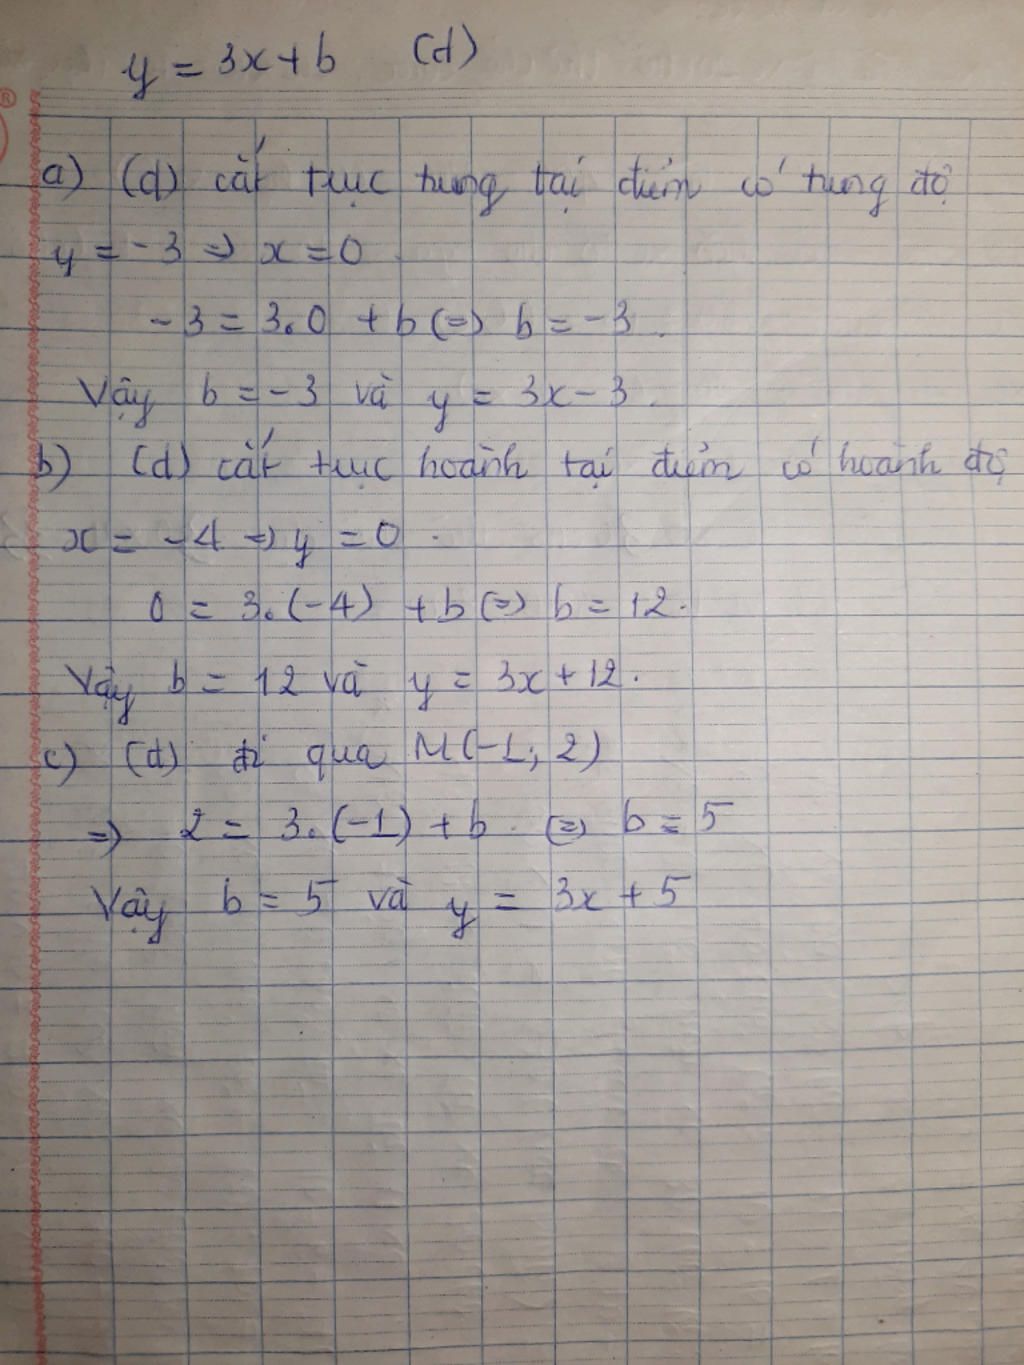 y = 3x + b (d)
a) (d) cắt trục tung tại điểm có tung độ
y = -3 => x = 0.
-3 = 3.0 + b (=) b = -3.
Vậy b = -3 và y = 3x - 3.
b) (d) cắt trục hoành tại điểm có hoành độ
x = -4 => y = 0.
0 = 3.(-4) + b (=) b = 12.
Vậy b = 12 và y = 3x + 12.
c) (d) đi qua M(-1; 2)
=> 2 = 3.(-1) + b. (=) b = 5
Vậy b = 5 và y = 3x + 5